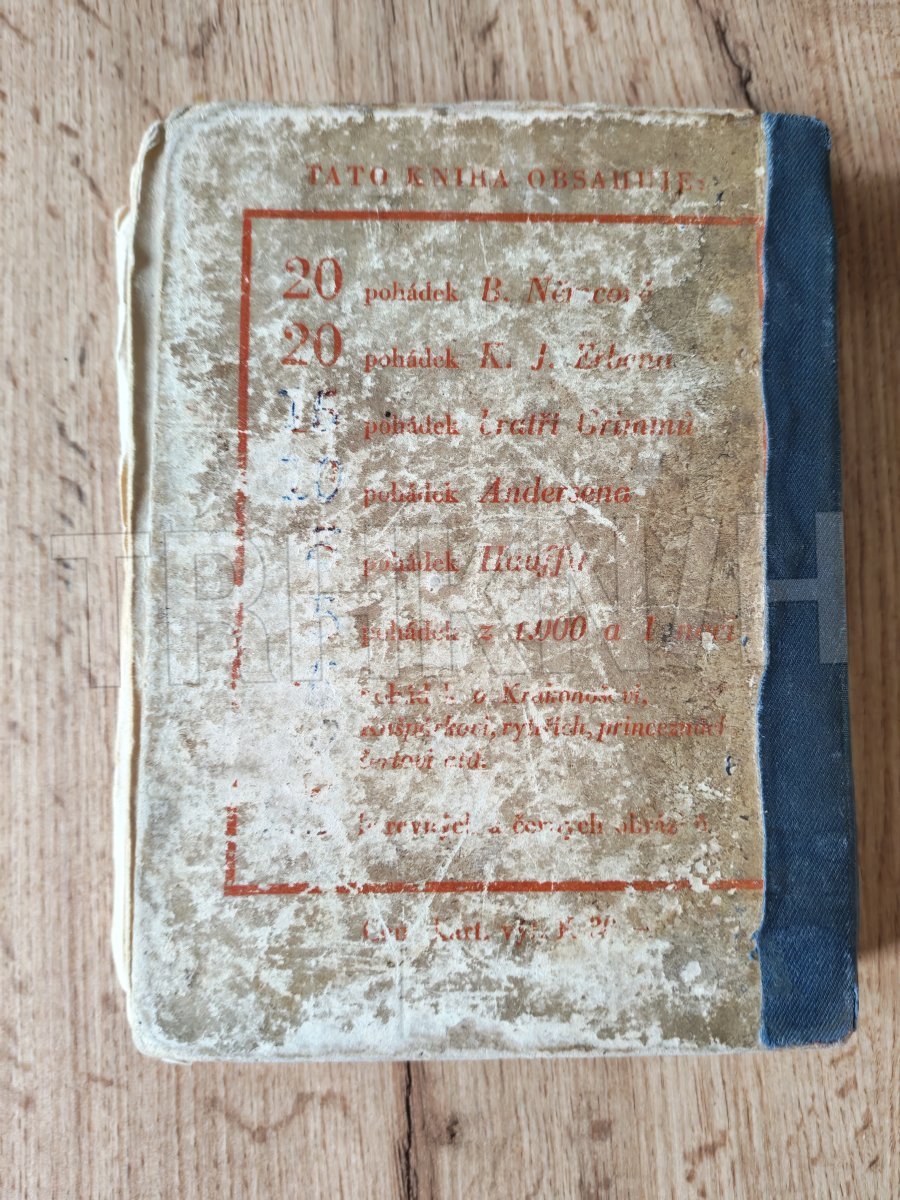 TATO KNIHA OBSAHUJE:
20 pohádek B. Němcové
20 pohádek K. J. Erbena
15 pohádek bratří Grimmů
10 pohádek Andersena
5 pohádek Hauffa
5 pohádek z 1.000 a 1 noci
pohádek o Krakonošovi,
Kašpárkovi, rytířích, princeznách
čertovi atd.
barevných a černých obrázků.
Kart. výt. K
TRHKNIH